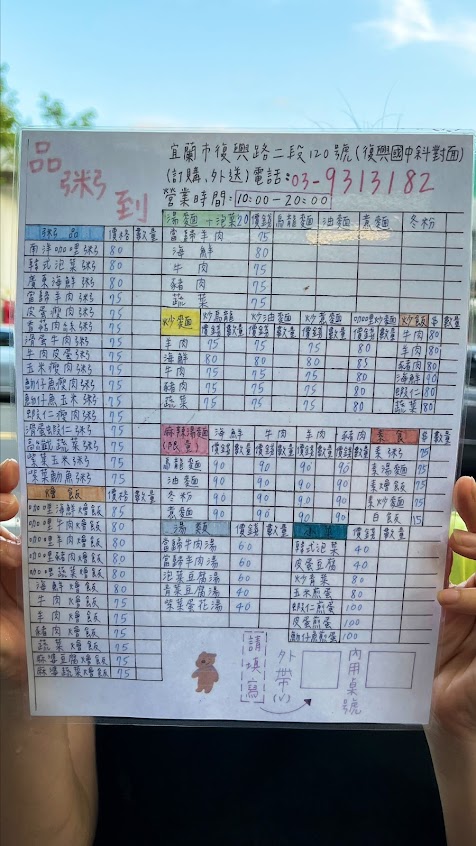 品粥到
宜蘭市復興路二段120號(復興國中斜對面)
(訂購、外送)電話:03-9313182
營業時間:10:00-20:00
粥品 價格 數量
南洋咖哩粥 80
韓式泡菜粥 80
廣東海鮮粥 80
當歸羊肉粥 75
皮蛋瘦肉粥 75
香菇肉絲粥 75
滑蛋牛肉粥 75
牛肉皮蛋粥 75
玉米瘦肉粥 75
魩仔魚瘦肉粥 75
魩仔魚玉米粥 75
蝦仁瘦肉粥 75
滑蛋蝦仁粥 75
高纖蔬菜粥 75
紫菜玉米粥 75
紫菜魩魚粥 75
燴飯 價格 數量
咖哩海鮮燴飯 85
咖哩牛肉燴飯 80
咖哩羊肉燴飯 80
咖哩豬肉燴飯 80
咖哩蔬菜燴飯 80
海鮮燴飯 80
牛肉燴飯 75
羊肉燴飯 75
豬肉燴飯 75
蔬菜燴飯 75
麻婆豆腐燴飯 75
麻婆蔬菜燴飯 75
湯麵 +泡菜20 價錢 烏龍麵 油麵 意麵 冬粉
當歸羊肉 75
海鮮 80
牛肉 75
豬肉 75
蔬菜 75
炒麵 炒烏龍 炒油麵 炒意麵 咖哩炒麵 炒飯 $ 數量
價錢 數量 價錢 數量 價錢 數量 價錢 數量 牛肉 80
羊肉 75 75 75 80 羊肉 80
海鮮 80 80 80 85 豬肉 80
牛肉 75 75 75 80 海鮮 90
豬肉 75 75 75 80 蝦仁 80
蔬菜 75 75 75 80 蔬菜 80
麻辣湯麵(限量) 海鮮 牛肉 羊肉 豬肉 素食 $ 數量
價錢 數量 價錢 數量 價錢 數量 價錢 數量 素粥 75
烏龍麵 90 90 90 90 素湯麵 75
油麵 90 90 90 90 素燴飯 75
冬粉 90 90 90 90 素炒麵 75
意麵 90 90 90 90 白飯 15
湯類 價錢 數量
當歸牛肉湯 60
當歸羊肉湯 60
泡菜豆腐湯 60
青菜豆腐湯 40
紫菜蛋花湯 40
價錢 數量
韓式泡菜 40
皮蛋豆腐 40
炒青菜 80
玉米煎蛋 80
蝦仁煎蛋 100
皮蛋煎蛋 100
魩仔魚煎蛋 100
請填寫
外帶(√)
內用桌號